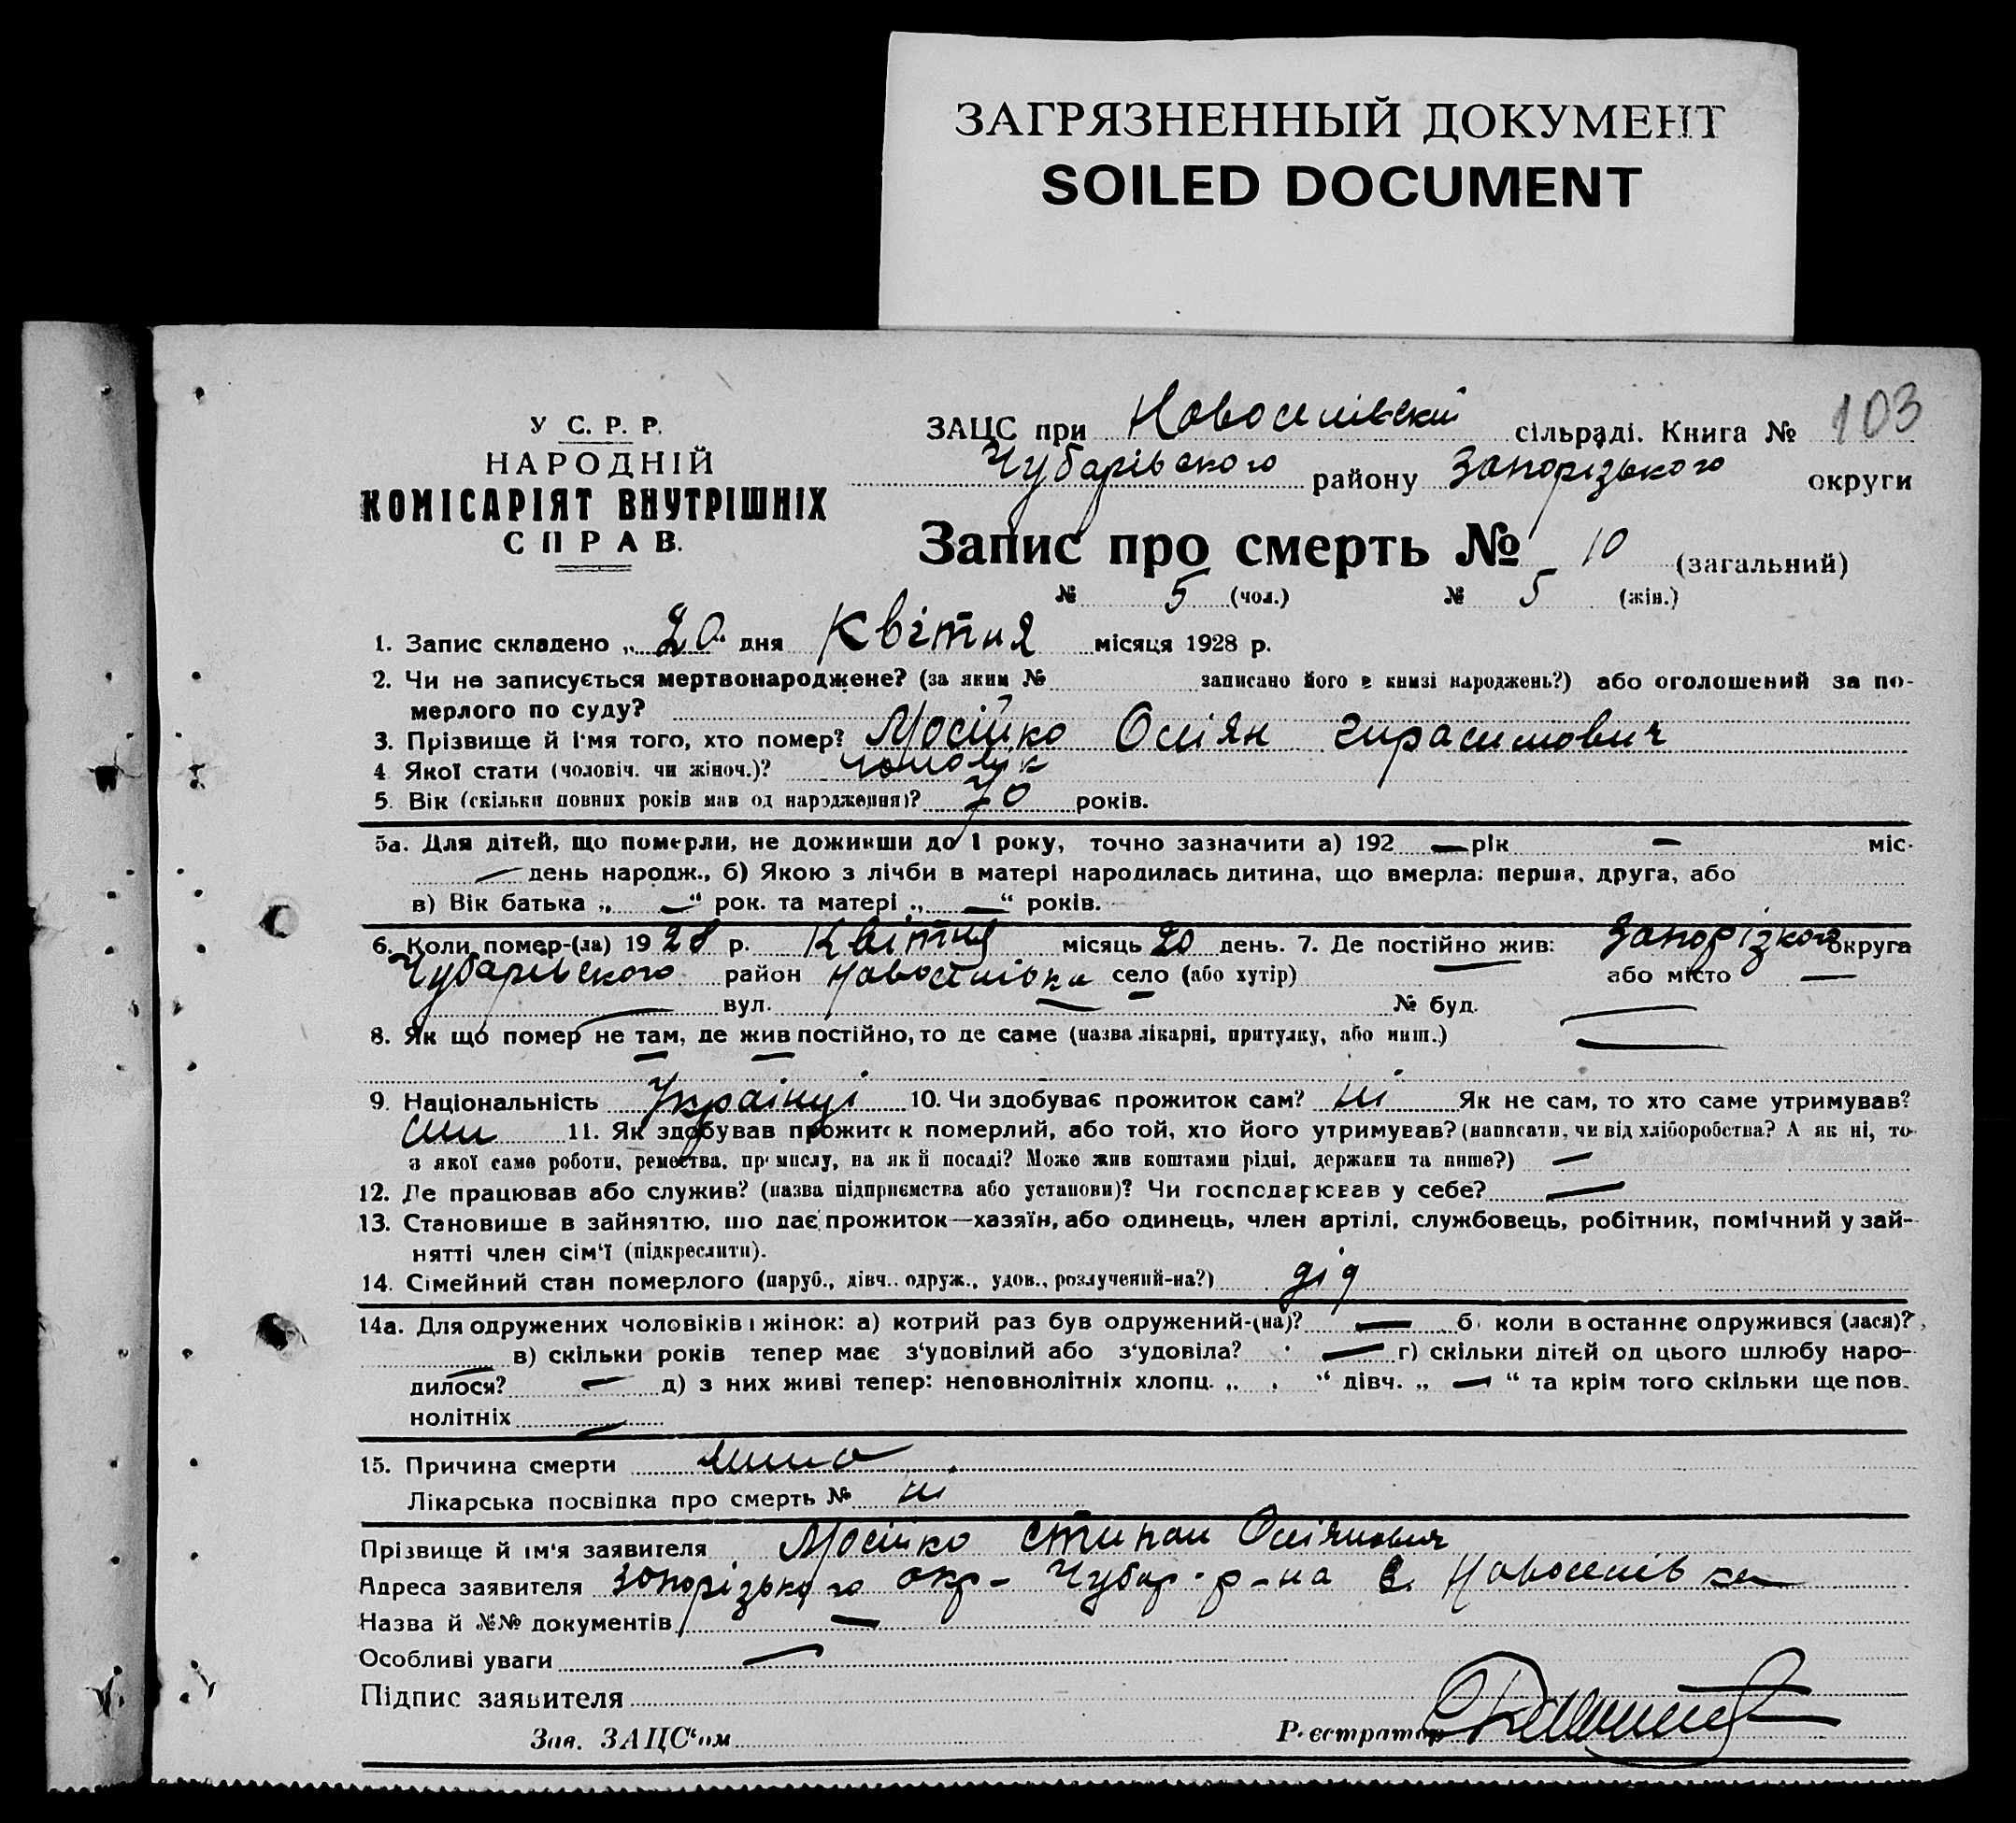 ЗАГРЯЗНЕННЫЙ ДОКУМЕНТ
SOILED DOCUMENT
103
У С. Р. Р.
НАРОДНІЙ
КОМІСАРІЯТ ВНУТРІШНІХ
СПРАВ.
ЗАЦС при Новоселівскій сільраді. Книга №
Чубарівського району Запорізького округи
Запис про смерть № 10 (загальний)
№ 5 (чол.) № 5 (жін.)
1. Запис складено „20" дня Квітня місяця 1928 р.
2. Чи не записується мертвонароджене? (за яким № записано його в книзі народжень?) або оголошений за по-
мерлого по суду?
3. Прізвище й ім'я того, хто помер? Мосійко Оліян Гирасимович
4 Якої стати (чоловіч. чи жіноч.)? чоловік
5. Вік (скільки повних років мав од народження)? 70 років.
5а. Для дітей, що померли, не доживши до 1 року, точно зазначити а) 192 — рік — міс.
— день народж., б) Якою з лічби в матері народилась дитина, що вмерла: перша, друга, або
в) Вік батька „—" рок. та матері „—" років.
6. Коли помер-(ла) 1928 р. Квітня місяць 20 день. 7. Де постійно жив: Запорізкого округа
Чубарівского район Новоселівка село (або хутір) — або місто —
вул. — № буд. —
8. Як що помер не там, де жив постійно, то де саме (назва лікарні, притулку, або инш.) —
9. Національність Українці 10. Чи здобуває прожиток сам? ні Як не сам, то хто саме утримував?
син 11. Як здобував прожиток померлий, або той, хто його утримував? (написати, чи від хліборобства? А як ні, то
з якої само роботи, ремества, промислу, на якій посаді? Може жив коштами рідні, держави та инше?) —
12. Де працював або служив? (назва підприємства або установи)? Чи господарював у себе? —
13. Становище в зайняттю, що дає прожиток—хазяїн, або одинець, член артілі, службовець, робітник, помічний у зай-
нятті член сім'ї (підкреслити).
14. Сімейний стан померлого (паруб., дівч., одруж., удов., розлучений-на?) дід
14а. Для одружених чоловіків і жінок: а) котрий раз був одружений-(на)? — б) коли в останнє одружився (лася)?
в) скільки років тепер має з'удовілий або з'удовіла? — г) скільки дітей од цього шлюбу наро-
дилося? — д) з них живі тепер: неповнолітніх хлопц. „ " дівч. „ — " та крім того скільки ще пов.
нолітніх —
15. Причина смерти
Лікарська посвідка про смерть № ні
Прізвище й ім'я заявителя Мосійко Стипан Оліянович
Адреса заявителя Запорізького окр- Чубар. р-на с. Новоселівка
Назва й №№ документів —
Особливі уваги —
Підпис заявителя
Зав. ЗАЦС'ом Реєстратор